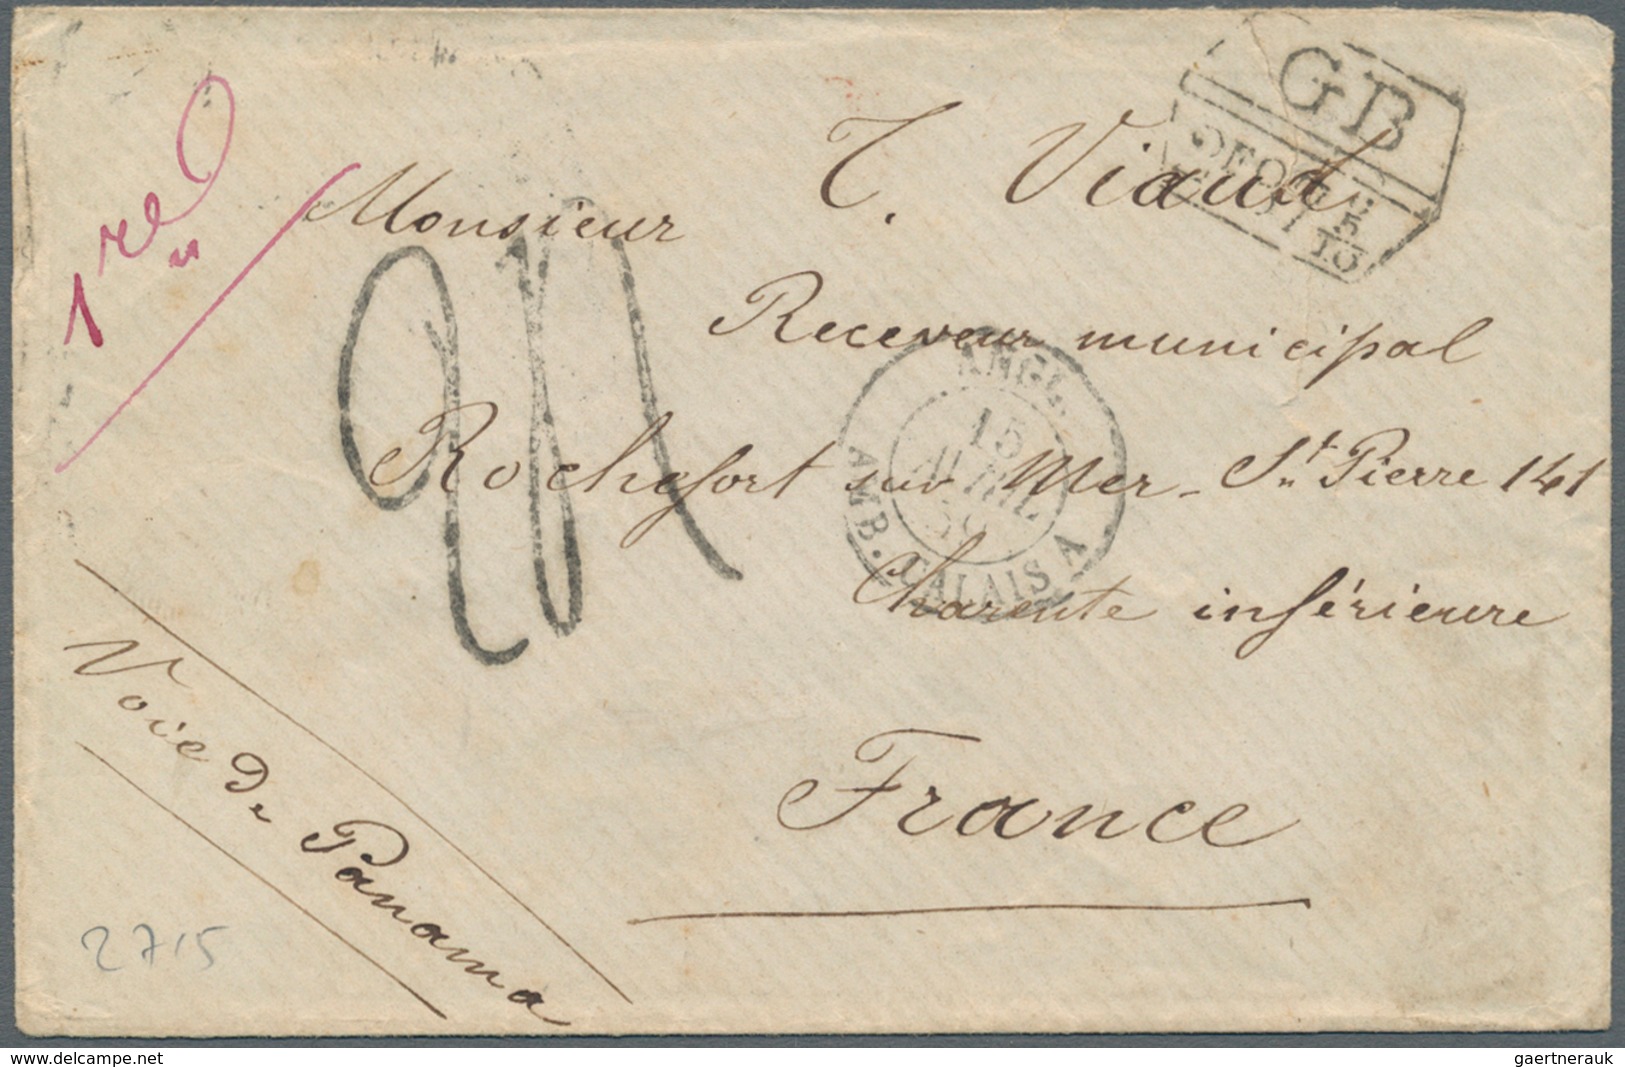 GB
2F 87 5/10
1re
Monsieur T. Viaud
Receveur municipal
Rochefort sur Mer - St. Pierre 141
Charente inférieure
France
Voie De Panama
ANGL.
15
AVRIL
59
AMB. CALAIS A
24
2715
www.delcampe.net
gaertnerauk